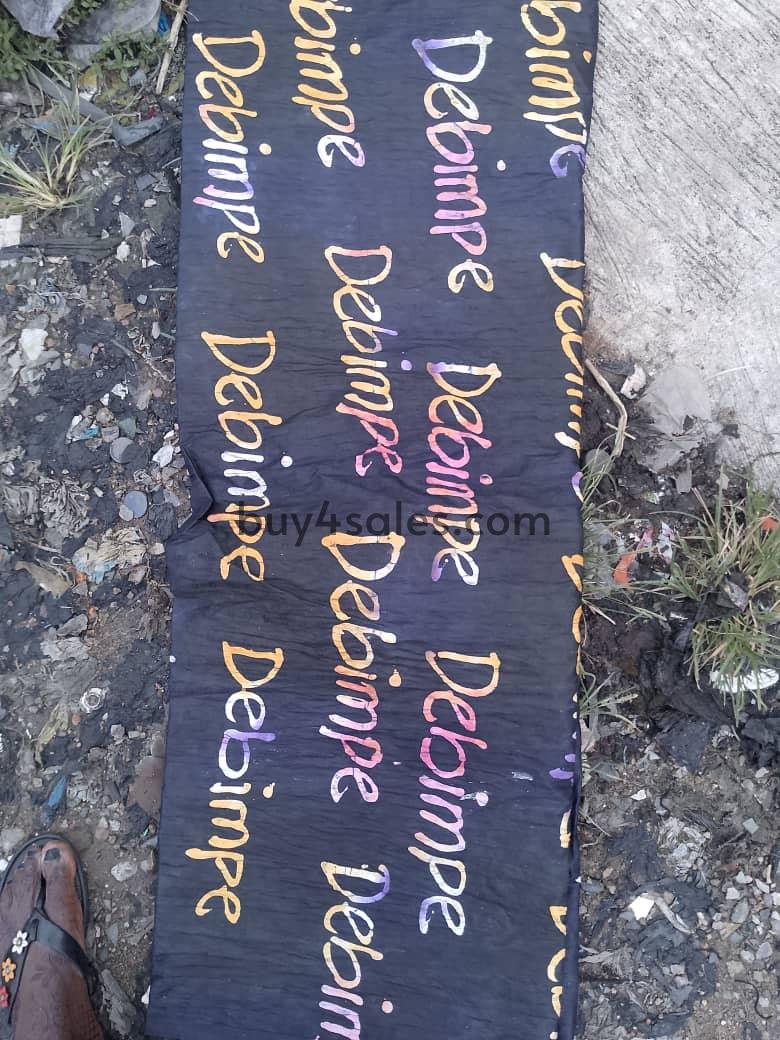 bimpe
Debimpe Debimpe Debimpe
bimpe Debimpe Debimpe Debim
Debimpe Debimpe Debimpe
buy4sales.com